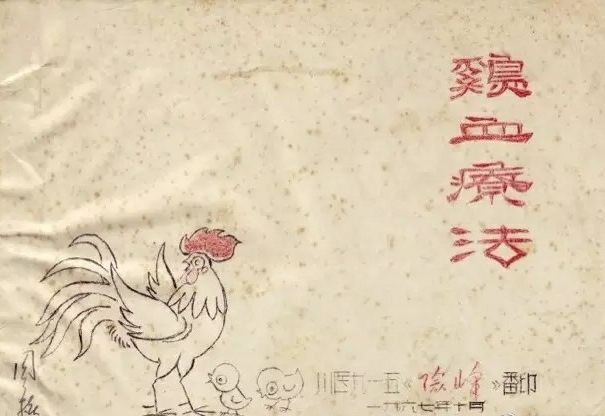 鷄血療法
川医九一五《险峰》番印
一九六七年十月
周